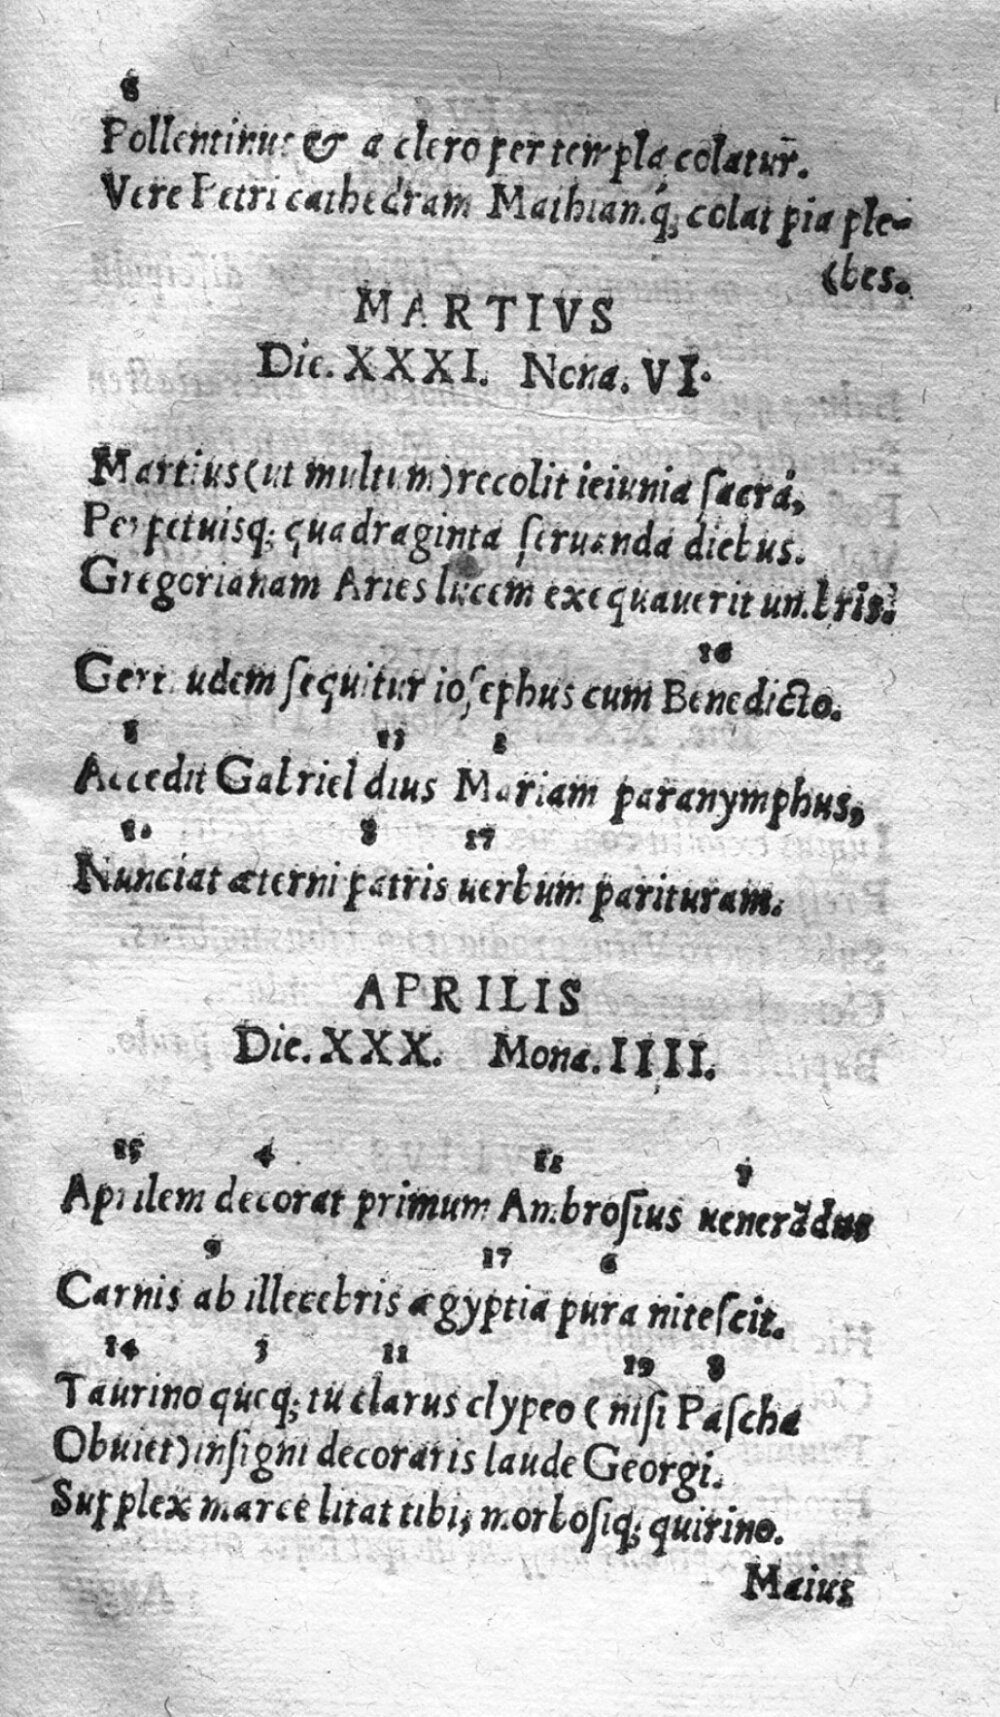 8
Pollentinus & a clero per templa colatur̃.
Vere Petri cathedram Mathianq́; colat pia ple-
(bes.
MARTIVS
Die. XXXI. Nona. VI.
Martius (ut multum) recolit ieiunia sacra,
Perpetuisq; quadraginta seruanda diebus.
Gregorianam Aries lucem exequauerit
16
Gertrudem sequitur iosephus cum Benedicto.
8 13 2
Accedit Gabriel dius Mariam paranymphus,
10 8 17
Nunciat æterni patris uerbum parituram.
APRILIS
Die. XXX. Mona. IIII.
15 4 12 7
Aprilem decorat primum Ambrosius uenerãdus
9 17 6
Carnis ab illecebris ægyptia pura nitescit.
14 3 11 19 8
Taurino quoq; tu clarus clypeo (nisi Pascha
Obuiet) insigni decoraris laude Georgi.
Supplex marce litat tibi, morbosiq; quirino.
Maius